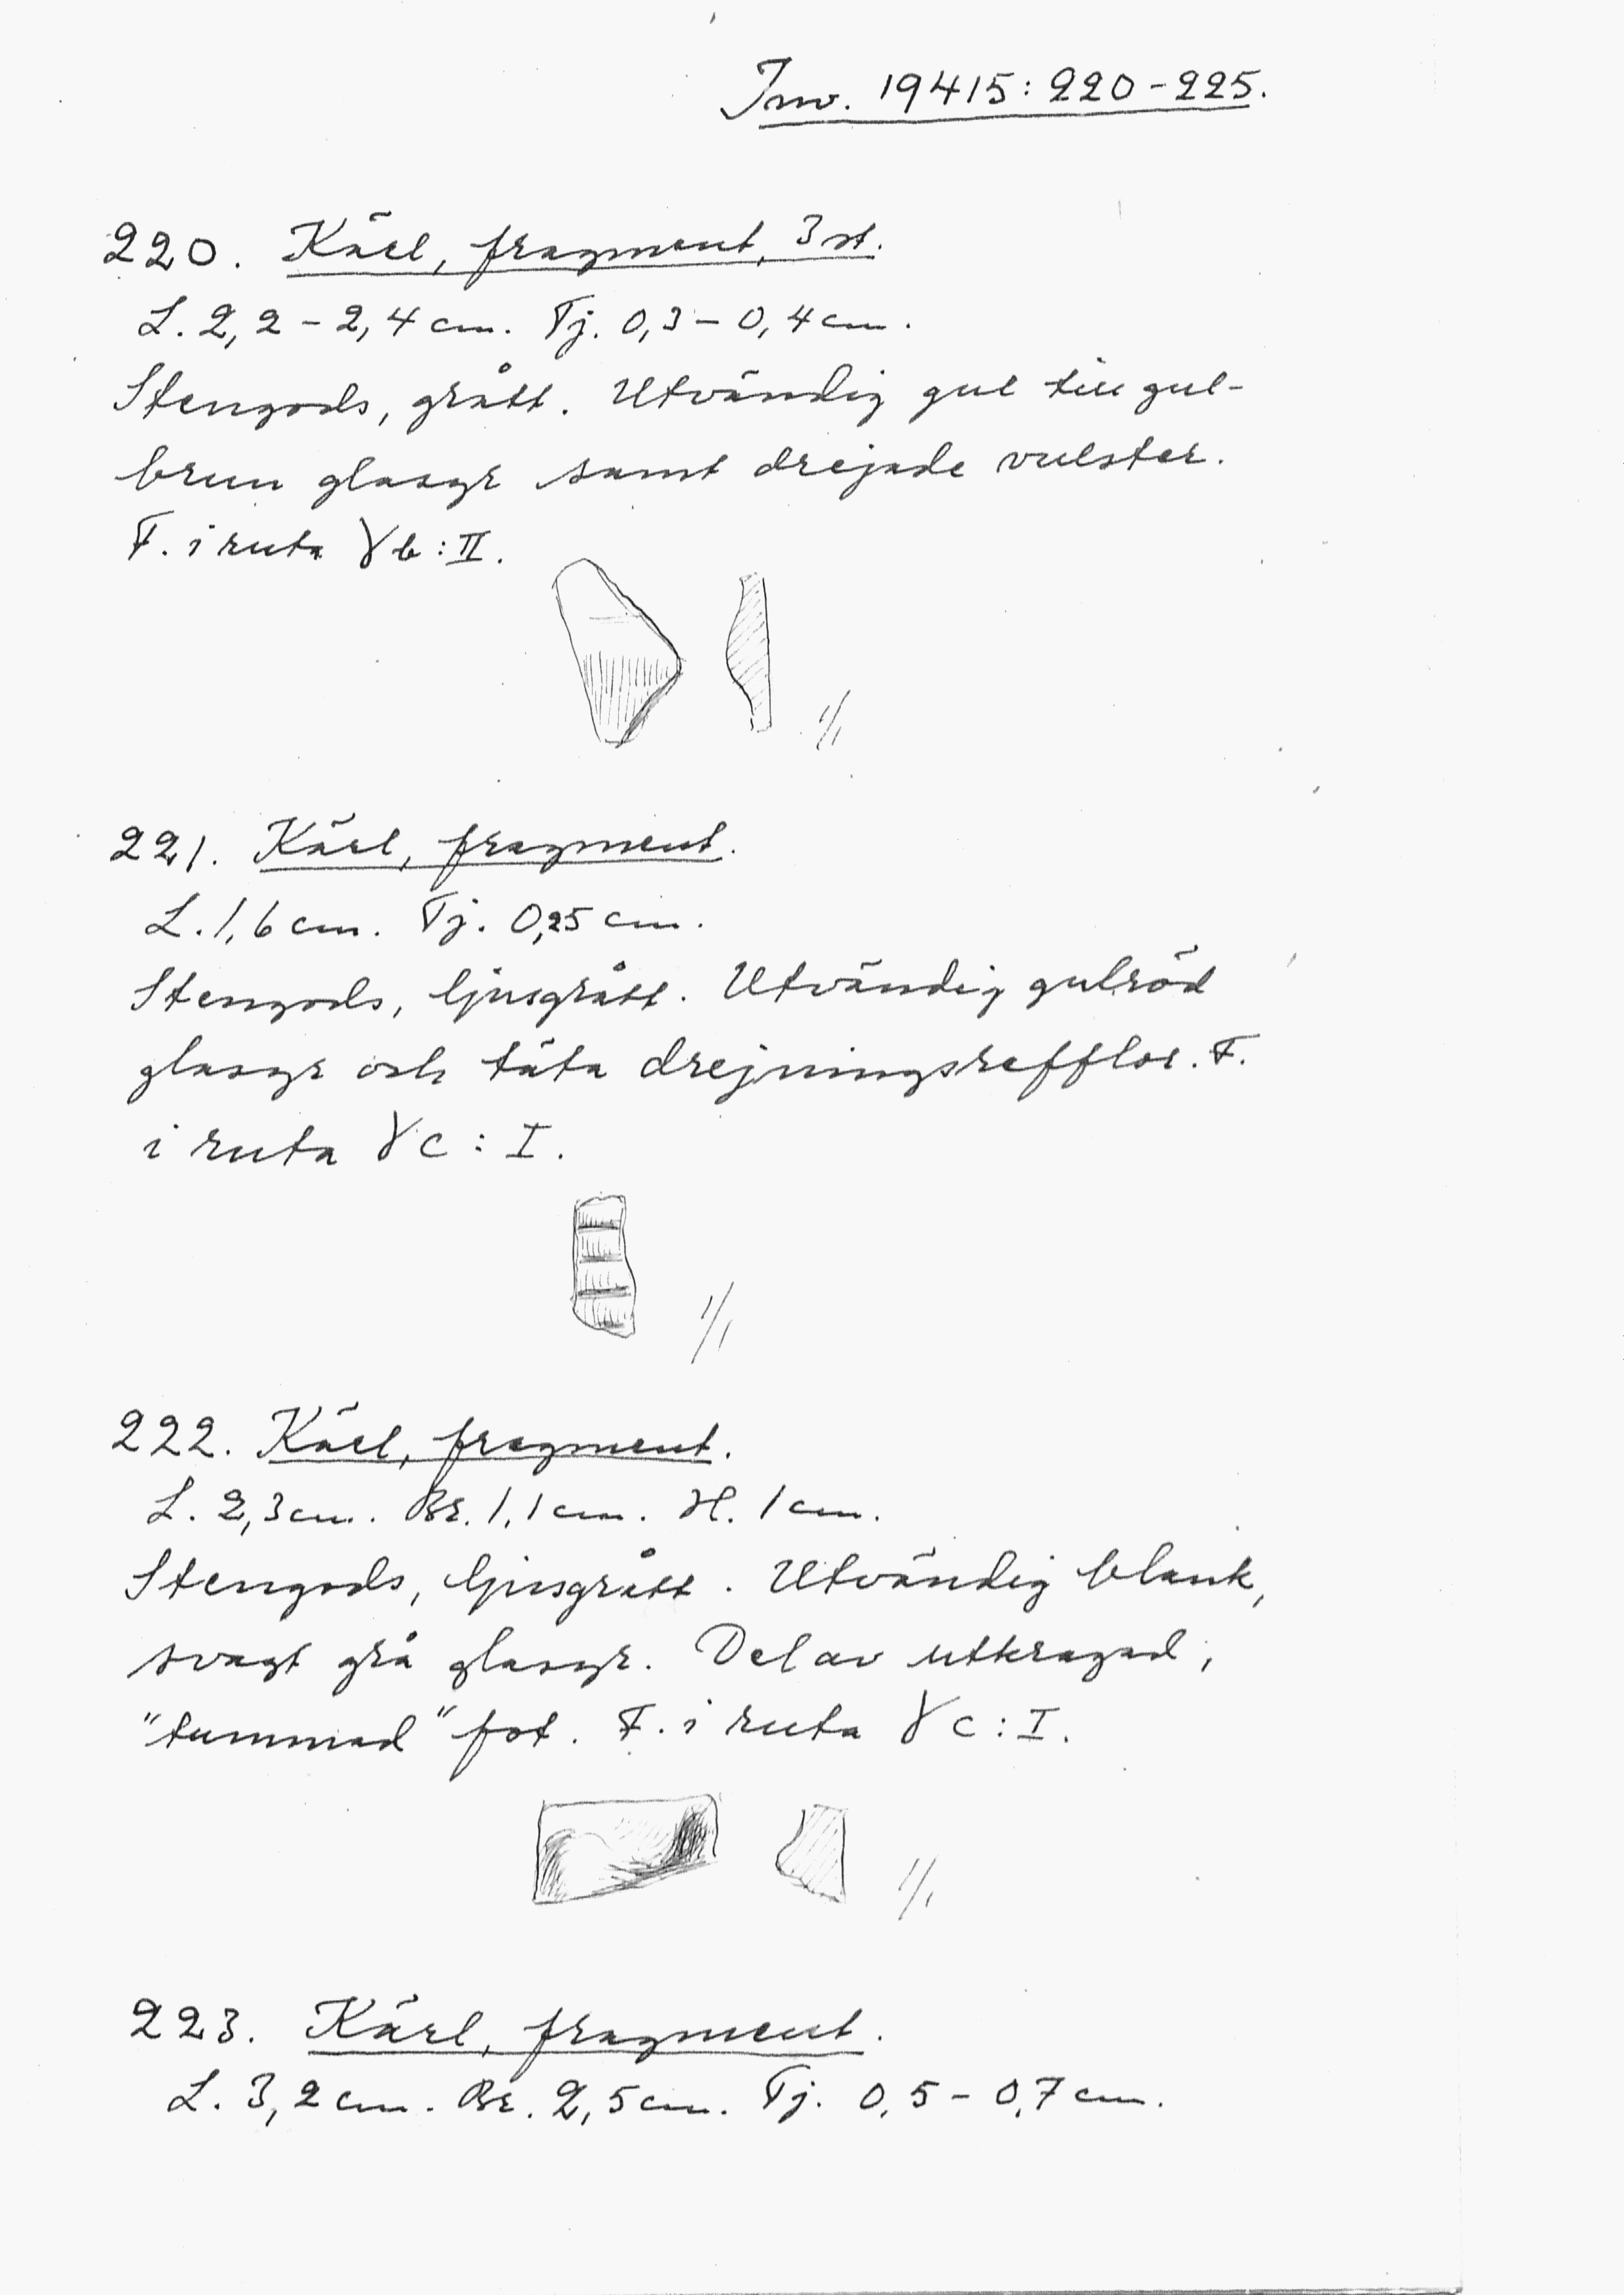 Inv. 19415:220-225.
220. Kärl, fragment, 3 st.
L. 2,2-2,4 cm. Tj. 0,3-0,4 cm.
Stengods, grått. Utvändig gul till gul-
brun glasyr samt drejade vulster.
F. i ruta γb:II.
1/1
221. Kärl, fragment.
L. 1,6 cm. Tj. 0,25 cm.
Stengods, ljusgrått. Utvändig gulröd
glasyr och täta drejningsrefflor. F.
i ruta γc:I.
1/1
222. Kärl, fragment.
L. 2,3 cm. Br. 1,1 cm. H. 1 cm.
Stengods, ljusgrått. Utvändig blank,
svagt grå glasyr. Del av utkragad,
"tummad" fot. F. i ruta γc:I.
1/1
223. Kärl, fragment.
L. 3,2 cm. Br. 2,5 cm. Tj. 0,5-0,7 cm.